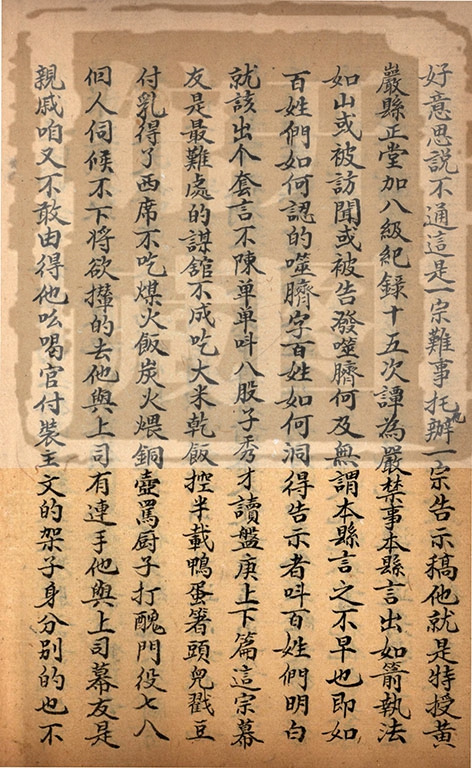 好意思説不通這是一宗難事托辦一宗告示稿他就是特授黄
嚴縣正堂加八級紀録十五次譚為嚴禁事本縣言出如箭執法
如山或被訪聞或被告發噬臍何及無謂本縣言之不早也即如
百姓們如何認的噬臍字百姓如何洞得告示者呌百姓們明白
就該出个套言不陳单单呌八股子秀才讀盤庚上下篇這宗幕
友是最難處的謀舘不成吃大米乾飯控半載鴨蛋箸頭兒戳豆
付乳得了西席不吃煤火飯炭火煨銅壺罵厨子打醜門役七八
個人伺候不下將欲攆的去他與上司有連手他與上司幕友是
親戚咱又不敢由得他吆喝官付裝主文的架子身分別的也不